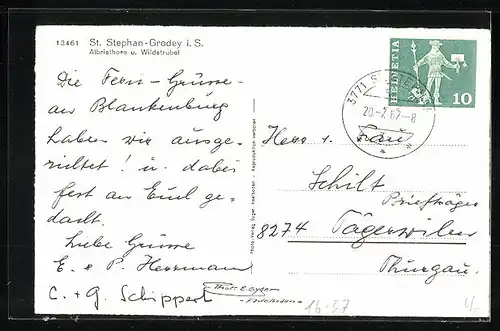 13461 St. Stephan-Grodey i. S.
Albristhorn u. Wildstrubel
Die Ferien-Grüsse
an Blankenburg
haben wir ausge-
richtet! u. dabei
fest an Euch ge-
dacht.
Liebe Grüsse
E. + P. Herrmann
C. + G. Schippert
HELVETIA
10
3771 S
20.-7.67.-8
Herr u. Frau
Schilt
Briefträger
8274 Tägerwilen
Thurgau.
Phot. E. Gyger
Adelboden
16-57